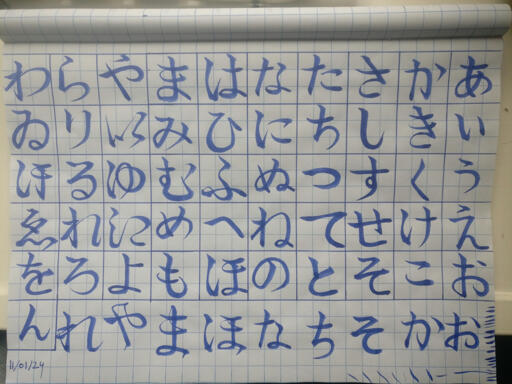 あいうえおお
かきくけこか
さしすせそそ
たちつてとち
なにぬねのな
はひふへほほ
まみむめもま
や𛀆ゆ𛀁よや
らりるれろれ
わゐ𛄟ゑをん
11/01/24